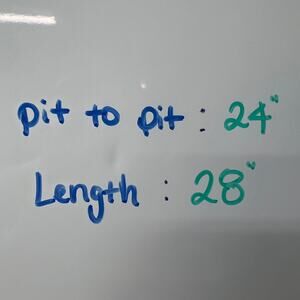 pit to pit : 24"
Length : 28"